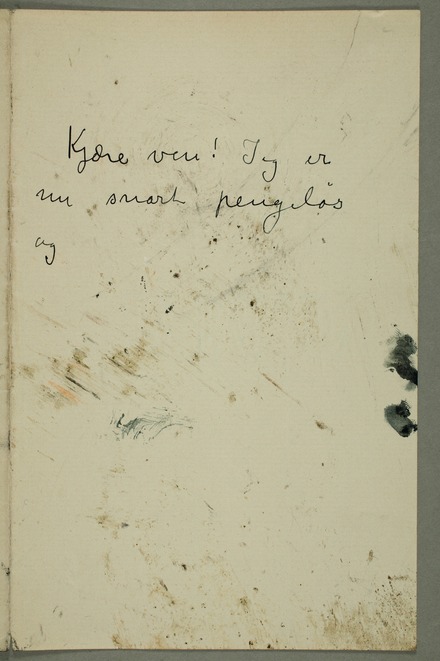 Kjære ven! Jeg er
nu snart pengeløs
og